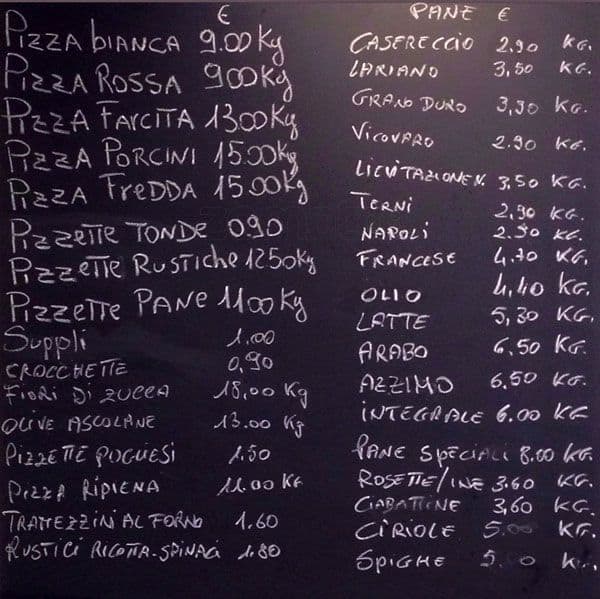 €
PIZZA bIANCA 9.00 Kg
PIZZA ROSSA 900 Kg
PIZZA FARCITA 13.00 Kg
PIZZA PORCINI 15.00 Kg
PIZZA FREDDA 15.00 Kg
PIZZETTE TONDE 0.90
PIZZETTE RUSTIChE 1250 Kg
PIZZETTE PANE 11.00 Kg
Supplì 1.00
CROCCHETTE 0,90
FIORI DI ZUCCA 18,00 Kg
OLIVE ASCOLANE 13.00 Kg
PIZZETTE PUGLIESI 1.50
PIZZA RIPIENA 11.00 KG
TRAMEZZINI AL FORNO 1.60
RUSTICI RICOTTA-SPINACI 1.80
PANE €
CASERECCIO 2,90 KG.
LARIANO 3,50 KG.
GRANO DURO 3,90 KG.
VICOVARO 2.90 KG.
LIEVITAZIONE N. 3,50 KG.
TERNI 2,90 KG.
NAPOLI 2.90 KG.
FRANCESE 4.70 KG.
OLIO 4,40 KG.
LATTE 5,30 KG.
ARABO 6,50 KG.
AZZIMO 6,50 KG.
INTEGRALE 6.00 KG
PANE SPECIALI 8.00 KG.
ROSETTE/INE 3,60 KG.
CIABATTINE 3,60 KG.
CIRIOLE 5.00 KG.
SPIGHE 5.00 K.